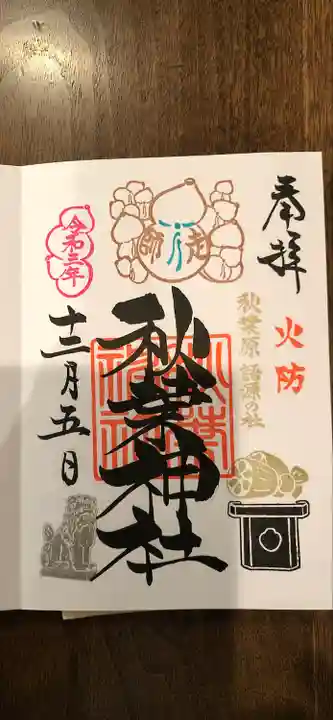 奉拝
火防
秋葉原 語源の社
秋葉神社
師走
令和三年
十二月五日